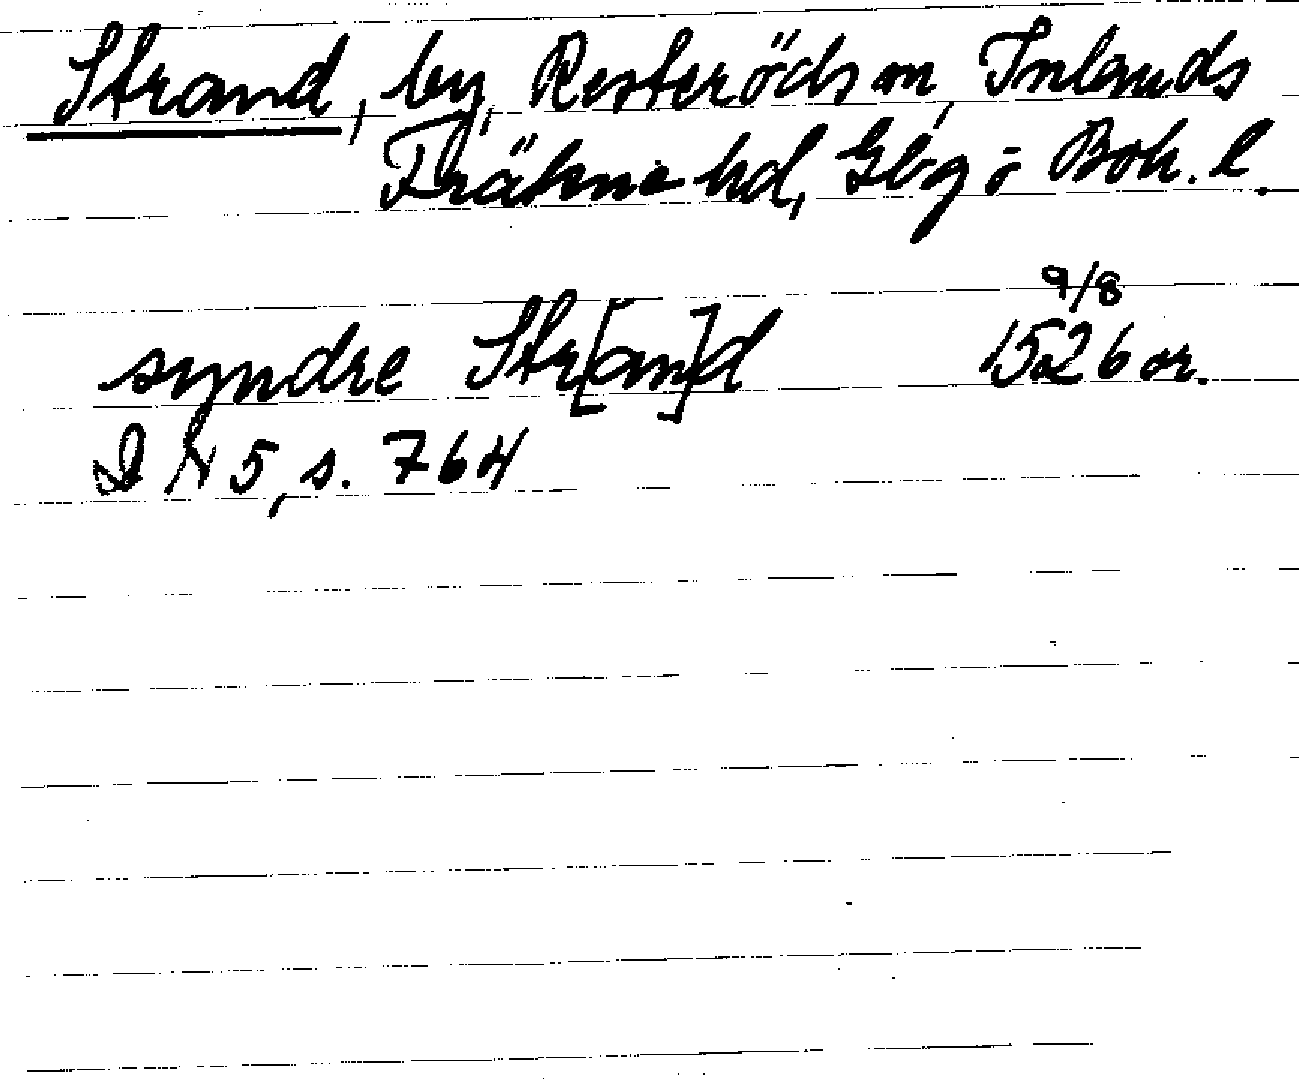 Strand, by, Resteröds sn, Inlands
Fräkne hd, Gbg o Boh. l.
9/8
syndre Str[an]d 1526 or.
DN 5, s. 764